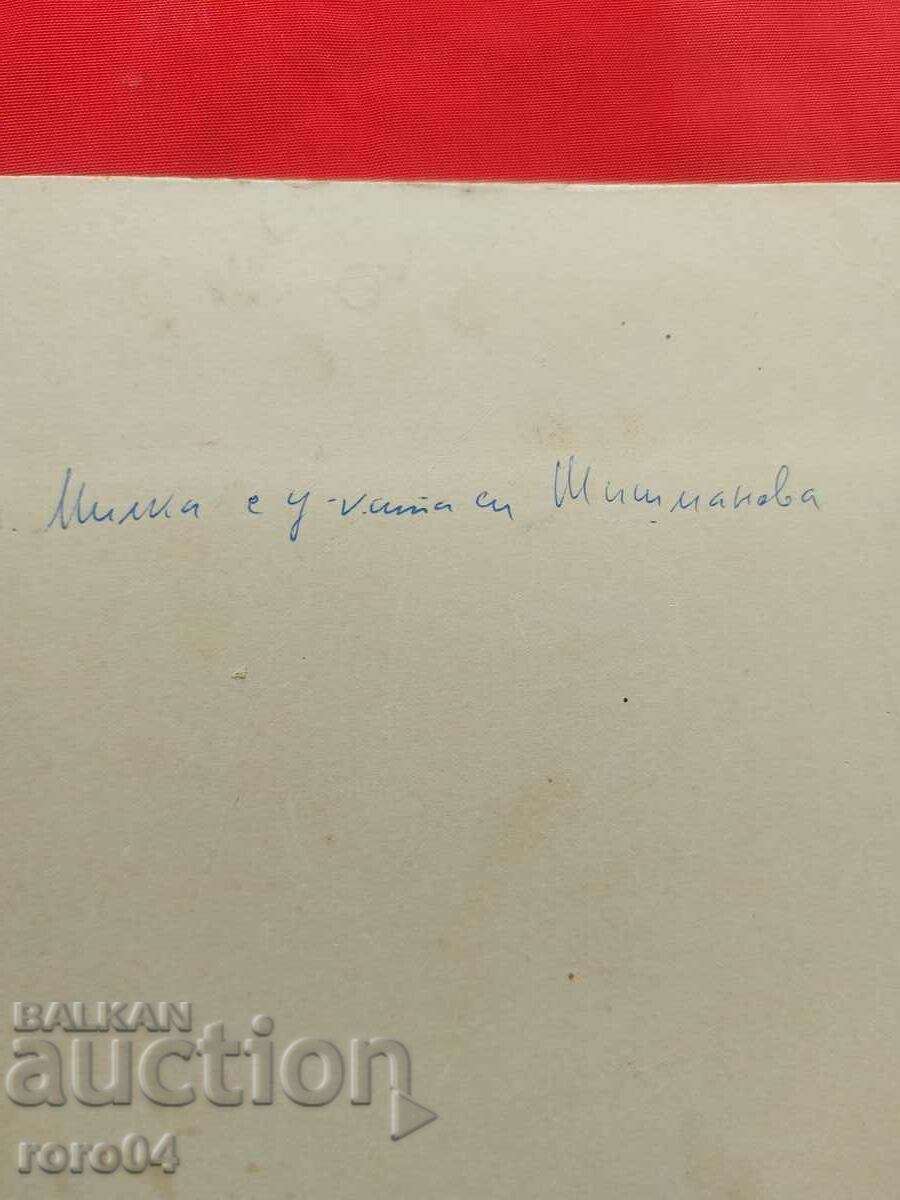 . Милка с у-ката си Шишманова
BALKAN
auction
roro04